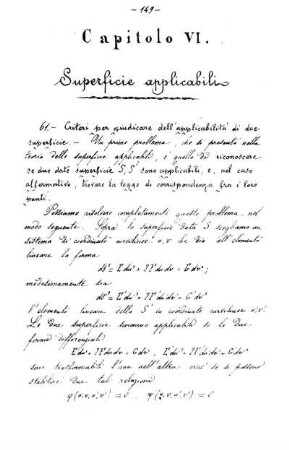 — 149 —
Capitolo VI.
Superficie applicabili
61.– Criteri per giudicare dell'applicabilità di due
superficie. – Un primo problema, che si presenta nella
teoria delle superficie applicabili, è quello di riconoscere
se due date superficie S, S' sono applicabili, e, nel caso
affermativo, trovare la legge di corrispondenza fra i loro
punti.
Possiamo risolvere completamente questo problema nel
modo seguente. Sopra la superficie data S scegliamo un
sistema di coordinate curvilinee u, v che dia all'elemento
lineare la forma
ds² = E du² + 2F du dv + G dv² ;
medesimamente sia
ds'² = E'du'² + 2F'du'dv' + G'dv'²
l'elemento lineare della S' in coordinate curvilinee u', v'.
Le due superficie saranno applicabili se le due
forme differenziali
E du² + 2F du dv + G dv² , E'du'² + 2F'du'dv' + G'dv'²
sono trasformabili l'una nell'altra cioè se si possono
stabilire due tali relazioni
φ(u, v, u', v') = 0 ψ(u, v, u', v') = 0